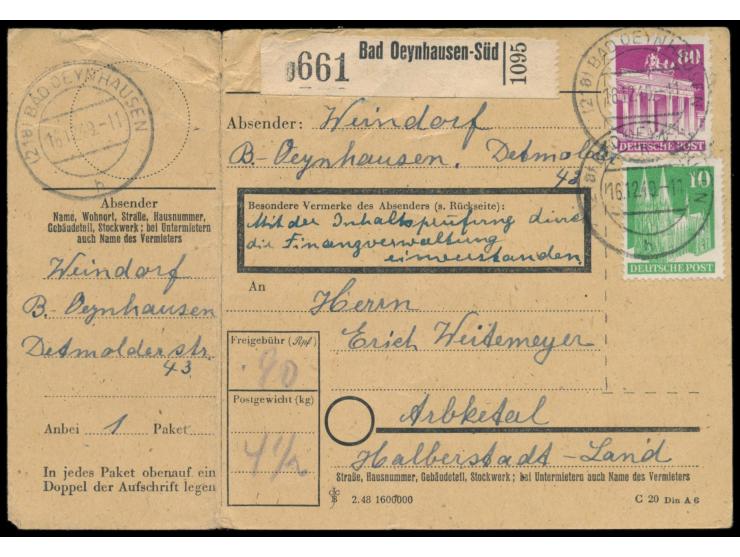 (21a) BAD OEYNHAUSEN
16.12.49.-11
h
0661
Bad Oeynhausen-Süd
1095
80
DEUTSCHE POST
16.12.49.-11
h
10
DEUTSCHE POST
Absender: Weindorf
B.-Oeynhausen, Detmolder
43
Besondere Vermerke des Absenders (s. Rückseite):
Mit der Inhaltsprüfung durch
die Finanzverwaltung
einverstanden
An Herrn
Erich Weitemeyer
Arbketal
Halberstadt-Land
Straße, Hausnummer, Gebäudeteil, Stockwerk; bei Untermietern auch Name des Vermieters
2.48 1600000
C 20 Din A 6
Freigebühr (Rpf)
90
Postgewicht (kg)
4 1/2
Absender
Name, Wohnort, Straße, Hausnummer,
Gebäudeteil, Stockwerk; bei Untermietern
auch Name des Vermieters
Weindorf
B.-Oeynhausen
Detmolderstr.
43
Anbei 1 Paket
In jedes Paket obenauf ein
Doppel der Aufschrift legen